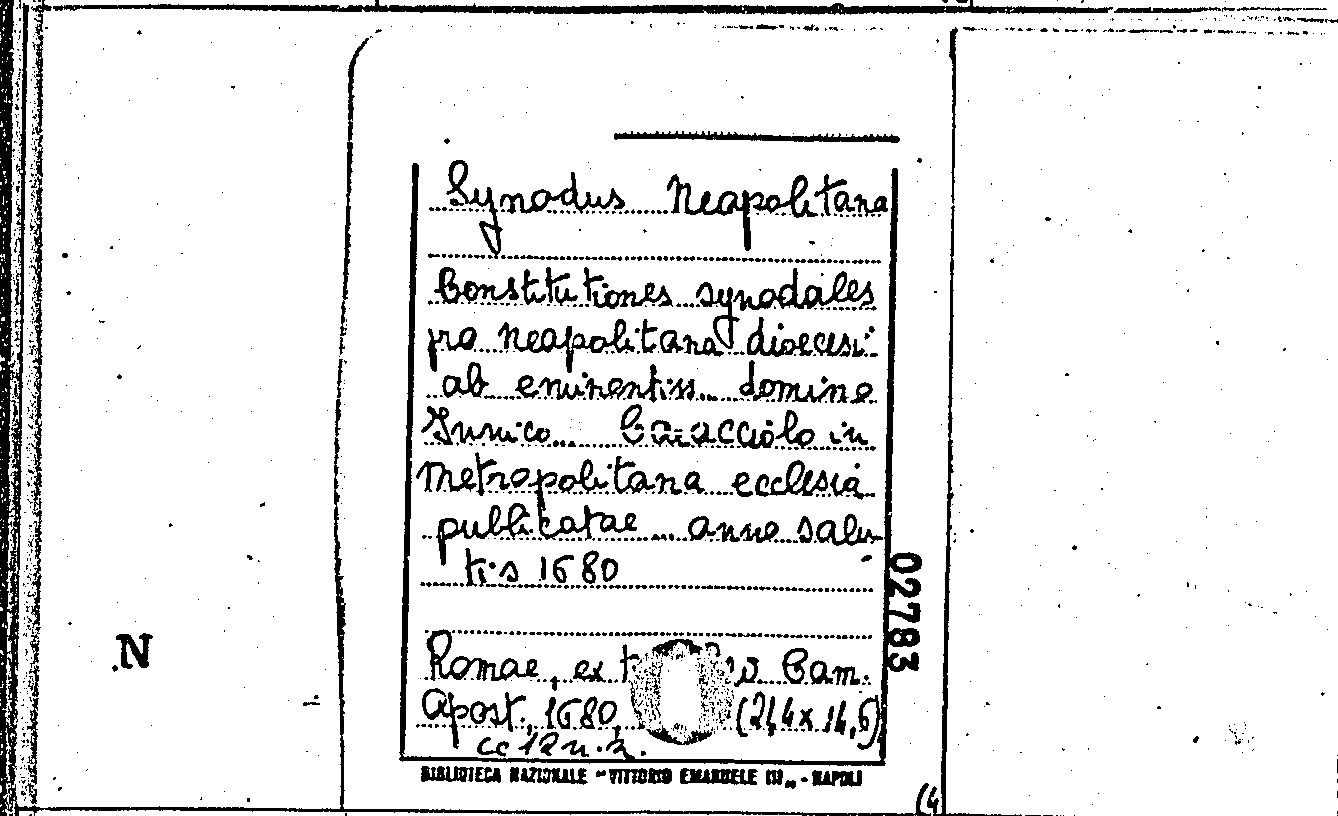 Synodus Neapolitana
Constitutiones synodales
pro neapolitana dioecesi
ab eminentiss... domino
Innico... Caracciolo in
metropolitana ecclesia
publicatae... anno salu-
tis 1680
Romae, ex Cam.
Apost., 1680, (21,4x14,5)
cc 12 n.n.
BIBLIOTECA NAZIONALE "VITTORIO EMANUELE III" - NAPOLI
02783
N
(4